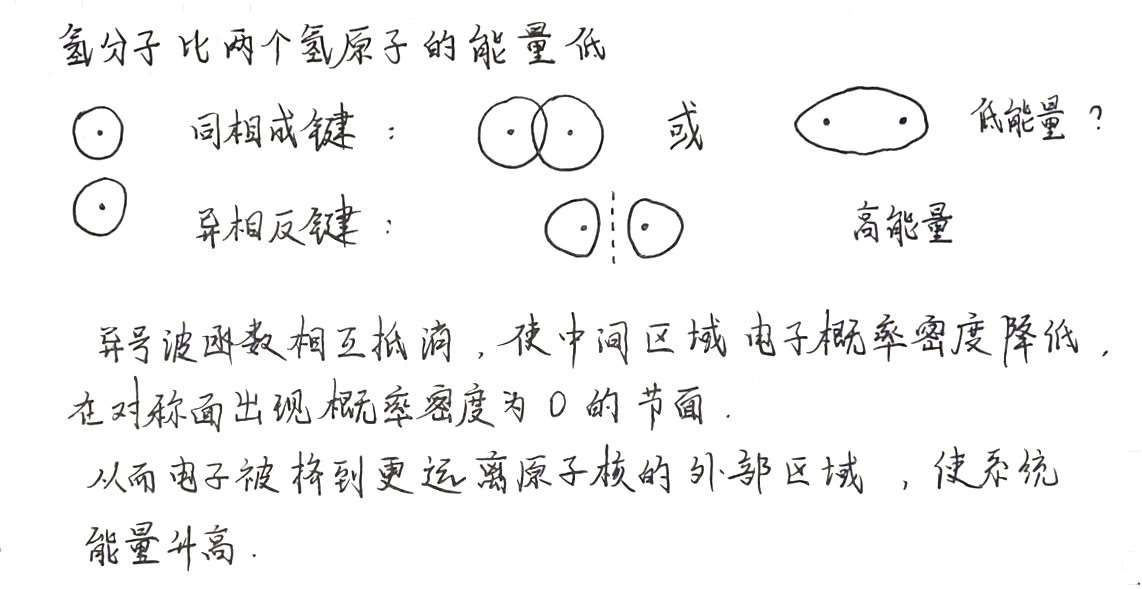 氢分子比两个氢原子的能量低
同相成键： 或 低能量？
异相反键： 高能量
异号波函数相互抵消，使中间区域电子概率密度降低，
在对称面出现概率密度为0的节面．
从而电子被挤到更远离原子核的外部区域，使系统
能量升高．